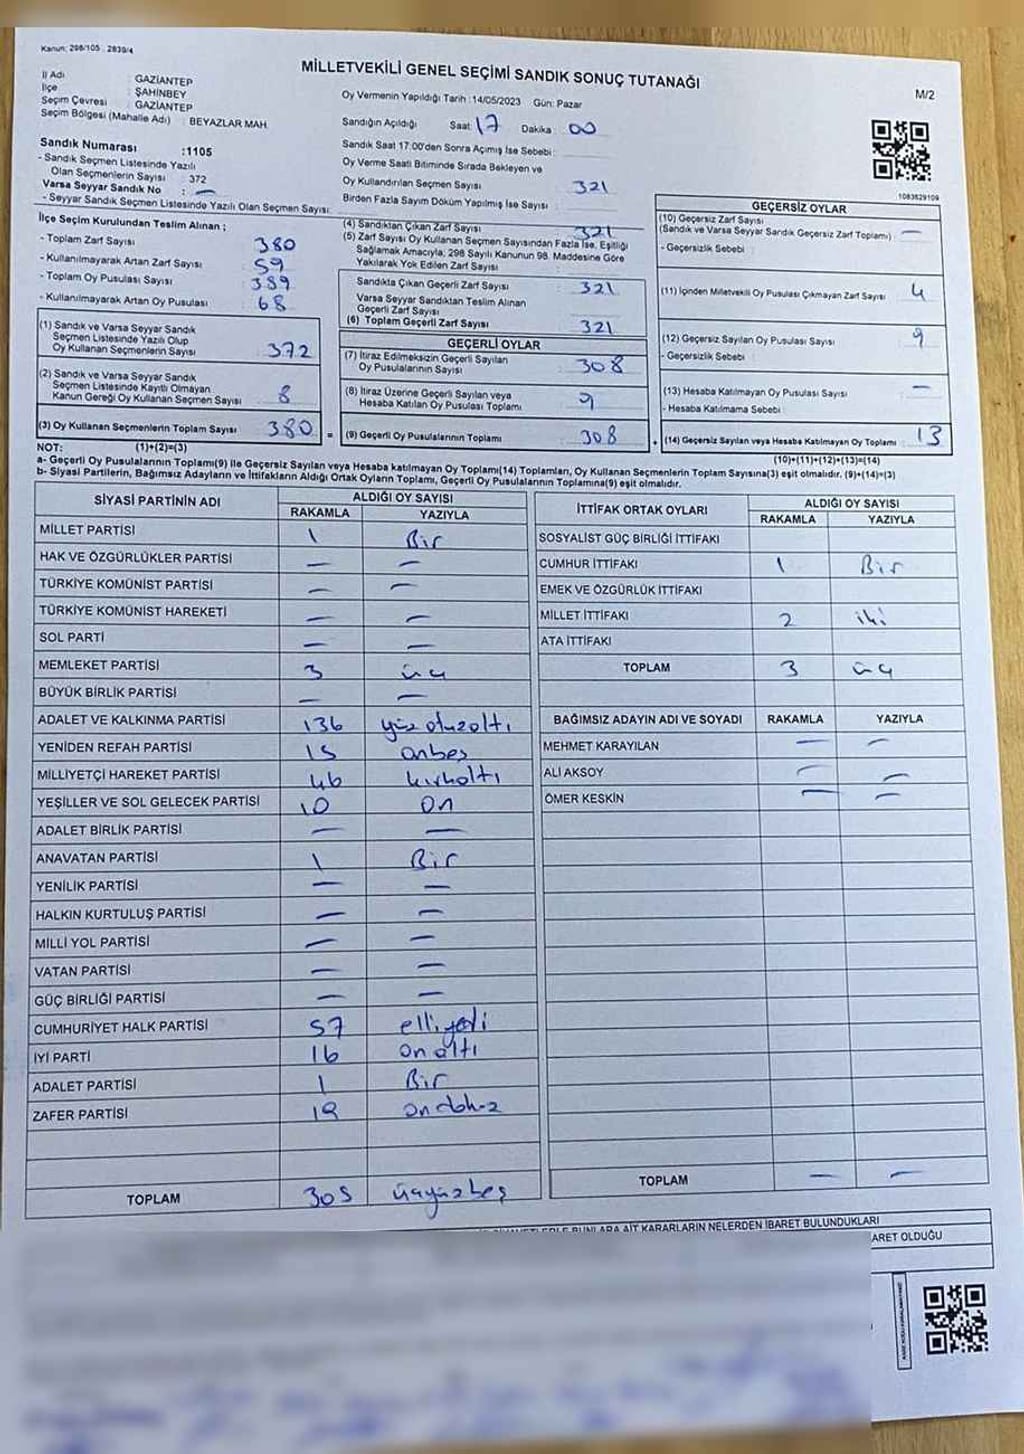 Kanun: 298/105 : 2839/4
MİLLETVEKİLİ GENEL SEÇİMİ SANDIK SONUÇ TUTANAĞI
M/2
İl Adı : GAZİANTEP
İlçe : ŞAHİNBEY
Seçim Çevresi : GAZİANTEP
Seçim Bölgesi (Mahalle Adı) : BEYAZLAR MAH.
Sandık Numarası :1105
- Sandık Seçmen Listesinde Yazılı
Olan Seçmenlerin Sayısı : 372
Varsa Seyyar Sandık No : —
- Seyyar Sandık Seçmen Listesinde Yazılı Olan Seçmen Sayısı:
Oy Vermenin Yapıldığı Tarih : 14/05/2023 Gün: Pazar
Sandığın Açıldığı Saat: 17 Dakika : 00
Sandık Saat 17:00'den Sonra Açımış İse Sebebi :
Oy Verme Saati Bitiminde Sırada Bekleyen ve
Oy Kullandırılan Seçmen Sayısı : 321
Birden Fazla Sayım Döküm Yapılmış İse Sayısı :
1083629109
İlçe Seçim Kurulundan Teslim Alınan ;
- Toplam Zarf Sayısı : 380
- Kullanılmayarak Artan Zarf Sayısı : 59
- Toplam Oy Pusulası Sayısı : 389
- Kullanılmayarak Artan Oy Pusulası : 68
(1) Sandık ve Varsa Seyyar Sandık
Seçmen Listesinde Yazılı Olup
Oy Kullanan Seçmenlerin Sayısı : 372
(2) Sandık ve Varsa Seyyar Sandık
Seçmen Listesinde Kayıtlı Olmayan
Kanun Gereği Oy Kullanan Seçmen Sayısı : 8
(3) Oy Kullanan Seçmenlerin Toplam Sayısı : 380 =
(4) Sandıktan Çıkan Zarf Sayısı : 321
(5) Zarf Sayısı Oy Kullanan Seçmen Sayısından Fazla İse, Eşitliği
Sağlamak Amacıyla; 298 Sayılı Kanunun 98. Maddesine Göre
Yakılarak Yok Edilen Zarf Sayısı :
Sandıkta Çıkan Geçerli Zarf Sayısı : 321
Varsa Seyyar Sandıktan Teslim Alınan
Geçerli Zarf Sayısı :
(6) Toplam Geçerli Zarf Sayısı : 321
GEÇERLİ OYLAR
(7) İtiraz Edilmeksizin Geçerli Sayılan
Oy Pusulalarının Sayısı : 308
(8) İtiraz Üzerine Geçerli Sayılan veya
Hesaba Katılan Oy Pusulası Toplamı : 9
(9) Geçerli Oy Pusulalarının Toplamı : 308 +
GEÇERSİZ OYLAR
(10) Geçersiz Zarf Sayısı
(Sandık ve Varsa Seyyar Sandık Geçersiz Zarf Toplamı) : —
- Geçersizlik Sebebi :
(11) İçinden Milletvekili Oy Pusulası Çıkmayan Zarf Sayısı : 4
(12) Geçersiz Sayılan Oy Pusulası Sayısı : 9
- Geçersizlik Sebebi
(13) Hesaba Katılmayan Oy Pusulası Sayısı : —
- Hesaba Katılmama Sebebi :
(14) Geçersiz Sayılan veya Hesaba Katılmayan Oy Toplamı : 13
NOT: (1)+(2)=(3) (10)+(11)+(12)+(13)=(14)
a- Geçerli Oy Pusulalarının Toplamı(9) ile Geçersiz Sayılan veya Hesaba katılmayan Oy Toplamı(14) Toplamları, Oy Kullanan Seçmenlerin Toplam Sayısına(3) eşit olmalıdır. (9)+(14)=(3)
b- Siyasi Partilerin, Bağımsız Adayların ve İttifakların Aldığı Ortak Oyların Toplamı, Geçerli Oy Pusulalarının Toplamına(9) eşit olmalıdır.
SİYASİ PARTİNİN ADI ALDIĞI OY SAYISI
RAKAMLA YAZIYLA
MİLLET PARTİSİ 1 Bir
HAK VE ÖZGÜRLÜKLER PARTİSİ — —
TÜRKİYE KOMÜNİST PARTİSİ — —
TÜRKİYE KOMÜNİST HAREKETİ — —
SOL PARTİ — —
MEMLEKET PARTİSİ 3 üç
BÜYÜK BİRLİK PARTİSİ — —
ADALET VE KALKINMA PARTİSİ 136 yüzotuzaltı
YENİDEN REFAH PARTİSİ 15 onbeş
MİLLİYETÇİ HAREKET PARTİSİ 46 kırkaltı
YEŞİLLER VE SOL GELECEK PARTİSİ 10 On
ADALET BİRLİK PARTİSİ — —
ANAVATAN PARTİSİ 1 Bir
YENİLİK PARTİSİ — —
HALKIN KURTULUŞ PARTİSİ — —
MİLLİ YOL PARTİSİ — —
VATAN PARTİSİ — —
GÜÇ BİRLİĞİ PARTİSİ — —
CUMHURİYET HALK PARTİSİ 57 elliyedi
İYİ PARTİ 16 onaltı
ADALET PARTİSİ 1 Bir
ZAFER PARTİSİ 19 ondokuz
TOPLAM 305 üçyüzbeş
İTTİFAK ORTAK OYLARI ALDIĞI OY SAYISI
RAKAMLA YAZIYLA
SOSYALİST GÜÇ BİRLİĞİ İTTİFAKI
CUMHUR İTTİFAKI 1 Bir
EMEK VE ÖZGÜRLÜK İTTİFAKI
MİLLET İTTİFAKI 2 iki
ATA İTTİFAKI
TOPLAM 3 üç
BAĞIMSIZ ADAYIN ADI VE SOYADI RAKAMLA YAZIYLA
MEHMET KARAYILAN — —
ALİ AKSOY — —
ÖMER KESKİN — —
TOPLAM — —
BUNLARA AİT KARARLARIN NELERDEN İBARET BULUNDUKLARI
OLDUĞU